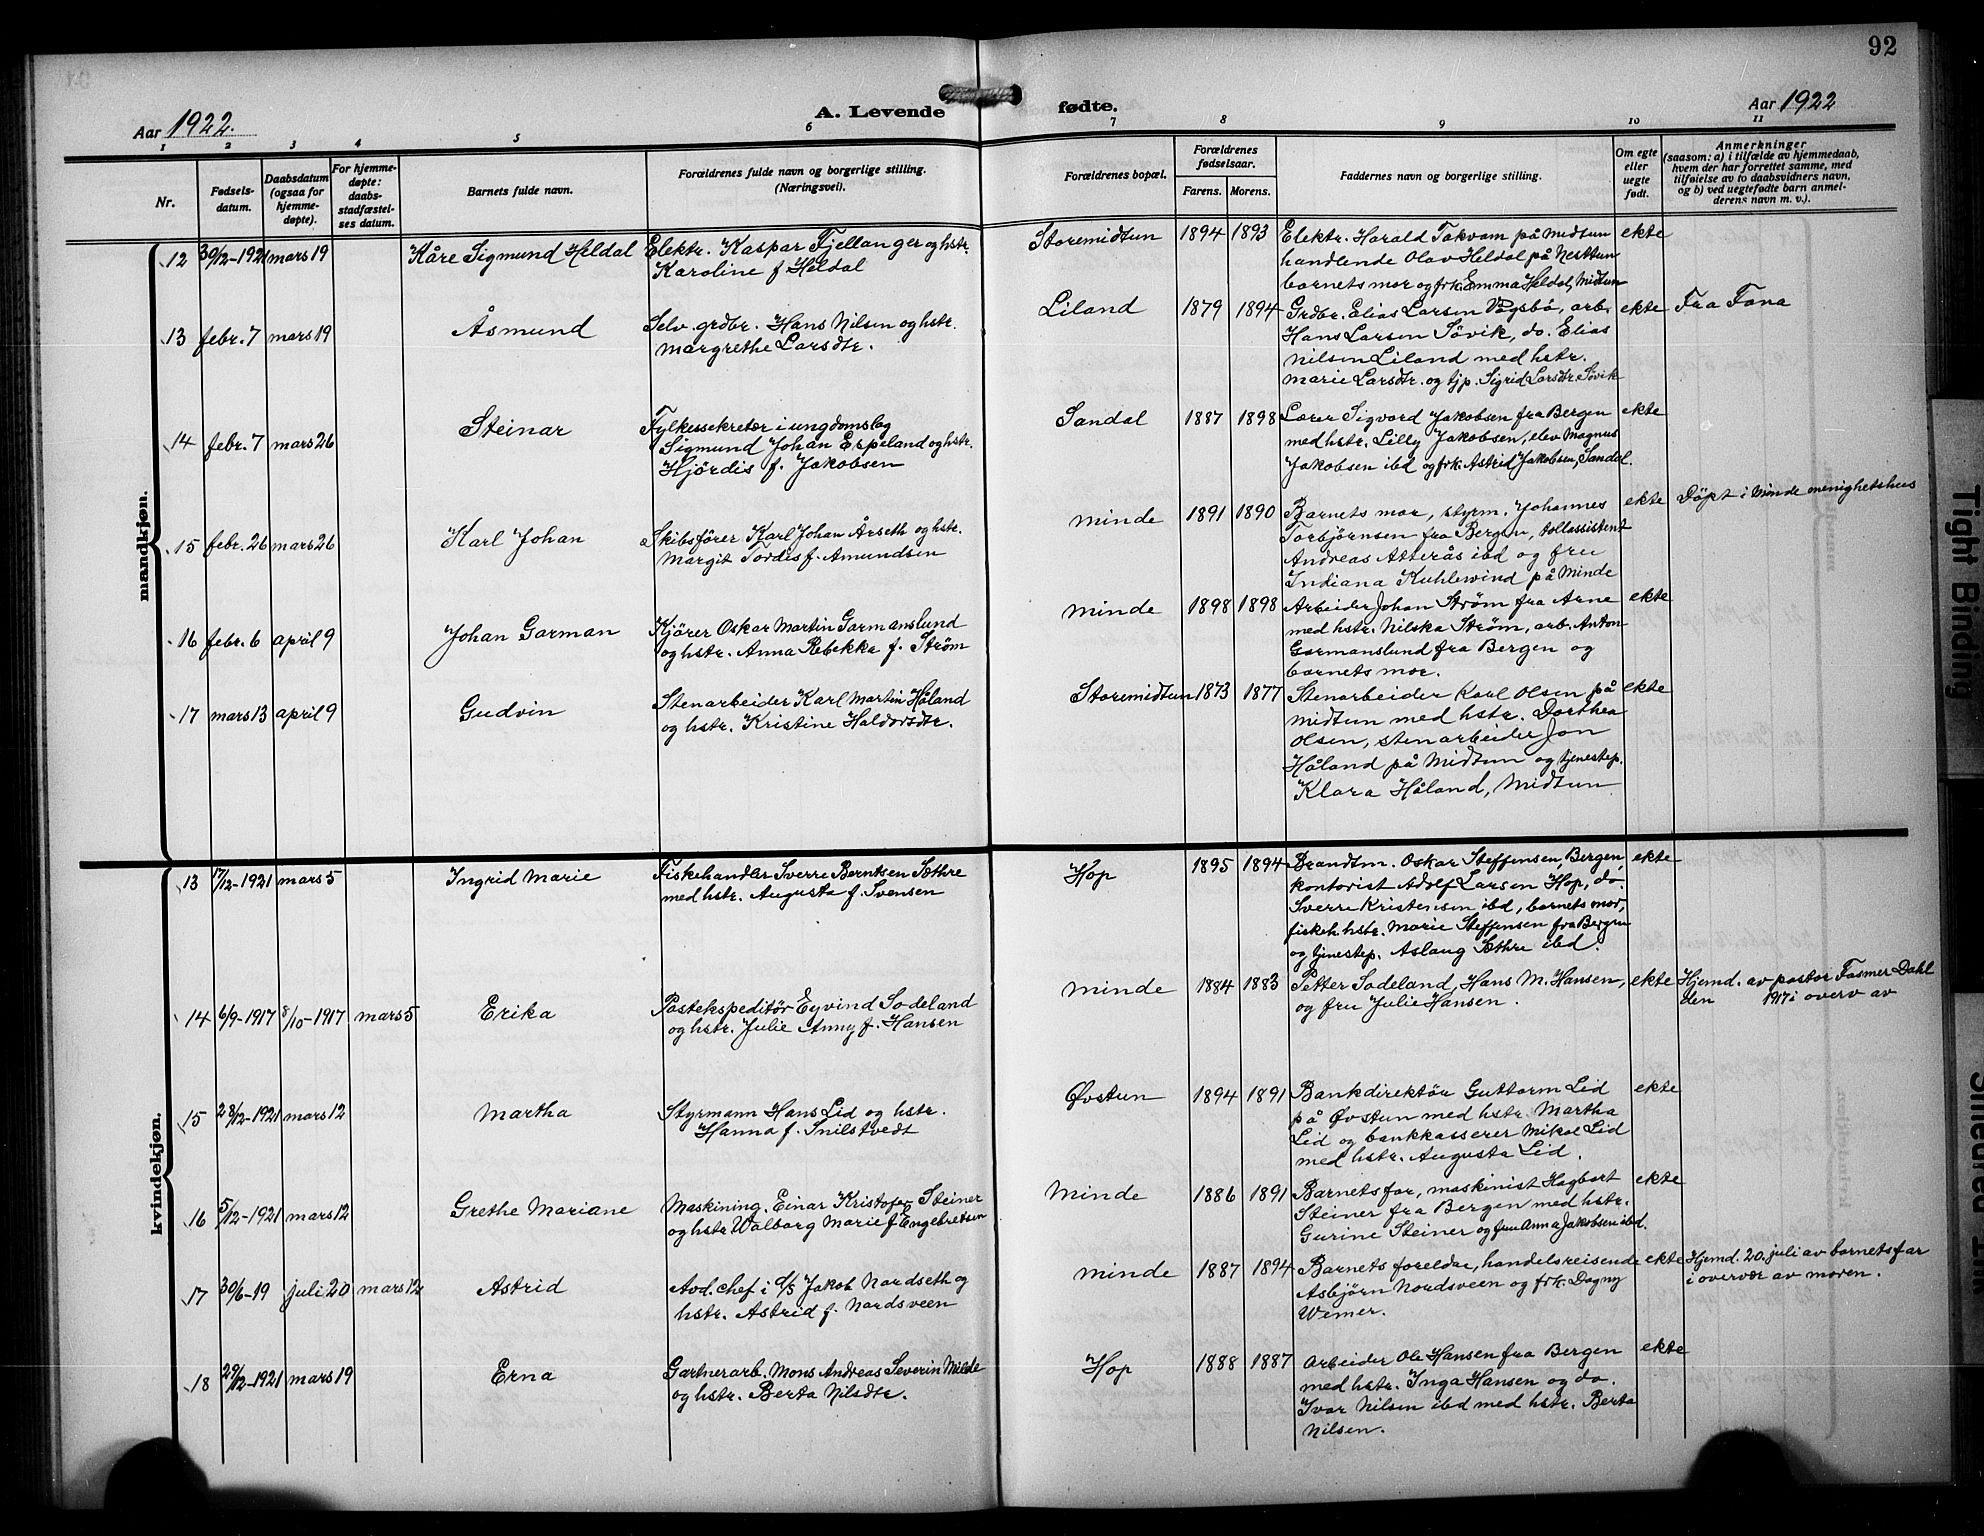 92
Aar 1922.
A. Levende fødte.
Aar 1922
1 2 3 4 5 6 7 8 9 10 11
Nr.
Fødsels-
datum.
Daabsdatum
(ogsaa for
hjemme-
døpte).
For hjemme-
døpte:
daabs-
stadfæstel-
ses datum.
Barnets fulde navn.
Forældrenes fulde navn og borgerlige stilling.
(Næringsvei).
Forældrenes bopæl.
Forældrenes
fødselsaar.
Farens. Morens.
Faddernes navn og borgerlige stilling.
Om egte
eller
uegte
født.
Anmerkninger
(saasom: a) i tilfælde av hjemmedaab,
hvem der har forrettet samme, med
tilføielse av to daabsvidners navn,
og b) ved uegtefødte barn anmel-
derens navn m. v.).
mandkjøn.
12 30/12-1921 mars 19 Kåre Sigmund Heldal Elektr. Kaspar Fjellanger og hstr.
Karoline f. Heldal
Storemidtun 1894 1893 Elektr. Harald Takvam på Midtun ekte
handlende Olav Heldal på Nesttun
barnets mor og frk. Emma Heldal, Midtun
13 febr. 7 mars 19 Åsmund Selv. grdbr. Hans Nilsen og hstr.
Margrethe Larsdtr.
Liland 1879 1894 Grdbr. Elias Larsen Vågsbø, arb. ekte Fra Fana
Hans Larsen Søvik, do. Elias
Nilsen Liland med hstr.
Marie Larsdtr. og tjp. Sigrid Larsdtr. Søvik
14 febr. 7 mars 26 Steinar Fylkessekretær i ungdomslag
Sigmund Johan Espeland og hstr.
Hjördis f. Jakobsen
Sandal 1887 1898 Lærer Sigvard Jakobsen fra Bergen ekte
med hstr. Lilly Jakobsen, elev Magnus
Jakobsen ibd og frk. Astrid Jakobsen, Sandal.
15 febr. 26 mars 26 Karl Johan Skibsfører Karl Johan Årseth og hstr.
Margit Tordis f. Amundsen
Minde 1891 1890 Barnets mor, styrm. Johannes ekte Döpt i Minde menighetshus
Torbjørnsen fra Bergen, tollassistent
Andreas Atterås ibd og fru
Indiana Kuhlewind på Minde
16 febr. 6 april 9 Johan Garman Kjører Oskar Martin Garmanslund
og hstr. Anna Rebekka f. Strøm
Minde 1898 1898 Arbeider Johan Strøm fra Arne ekte
med hstr. Nilska Strøm, arb. Anton
Garmanslund fra Bergen og
barnets mor.
17 mars 13 april 9 Gudvin Stenarbeider Karl Martin Håland
og hstr. Kristine Haldorsdtr.
Storemidtun 1873 1877 Stenarbeider Karl Olsen på ekte
Midtun med hstr. Dorthea
Olsen, stenarbeider Jon
Håland på Midtun og tjenestep.
Klara Håland, Midtun
kvindekjøn.
13 17/12-1921 mars 5 Ingrid Marie Fiskehandler Sverre Berntsen Sæthre
med hstr. Augusta f. Svensen
Hop 1895 1894 Brandtm. Oskar Steffensen, Bergen, ekte
kontorist Adolf Larsen Hop, do.
Sverre Kristensen ibd, barnets mor,
fiskeh. hstr. Marie Steffensen fra Bergen
og tjenestep. Aslaug Sæthre ibd.
14 6/9-1917 8/10-1917 mars 5 Erika Postekspeditör Eyvind Sodeland
og hstr. Julie Anny f. Hansen
Minde 1884 1883 Petter Sodeland, Hans M. Hansen, ekte Hjemd. av pastor Fasmer Dahl
og fru Julie Hansen. den 1917 i overv av
15 28/12-1921 mars 12 Martha Styrmann Hans Lid og hstr.
Hanna f. Snilstvedt
Øvstun 1894 1891 Bankdirektör Guttorm Lid ekte
på Øvstun med hstr. Martha
Lid og bankkasserer Mikal Lid
med hstr. Augusta Lid.
16 5/12-1921 mars 12 Grethe Mariane Maskining. Einar Kristofer Steiner
og hstr. Walborg Marie f. Engebretsen
Minde 1886 1891 Barnets far, maskinist Hagbart ekte
Steiner fra Bergen med hstr.
Gurine Steiner og fru Anna Jakobsen ibd.
17 30/6-19 juli 20 mars 12 Astrid Avd. chef i A/S Jakob Nordseth og
hstr. Astrid f. Nordsveen
Minde 1887 1894 Barnets foreldre, handelsreisende ekte Hjemd. 20. juli av barnets far
Asbjörn Nordsveen og frk. Dagny i overvær av moren.
Werner.
18 29/12-1921 mars 19 Erna Gartnerarb. Mons Andreas Severin Milde
og hstr. Berta Nilsdtr.
Hop 1888 1887 Arbeider Ole Hansen fra Bergen ekte
med hstr. Inga Hansen og do.
Ivar Nilsen ibd med hstr. Berta
Nilsen.
Tight Binding